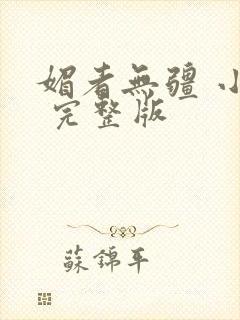 媚者無疆 小
完整版
蘇錦年